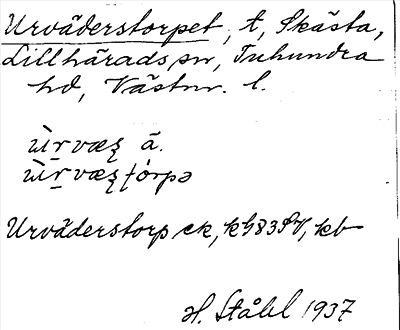 Urväderstorpet, t, Skästa,
Lillhärads sn, Tuhundra
hd, Västm. l.
ùrvæʂ ä.
ùrvæʂtórpə
Urväderstorp ek, kb
H. Ståhl 1937